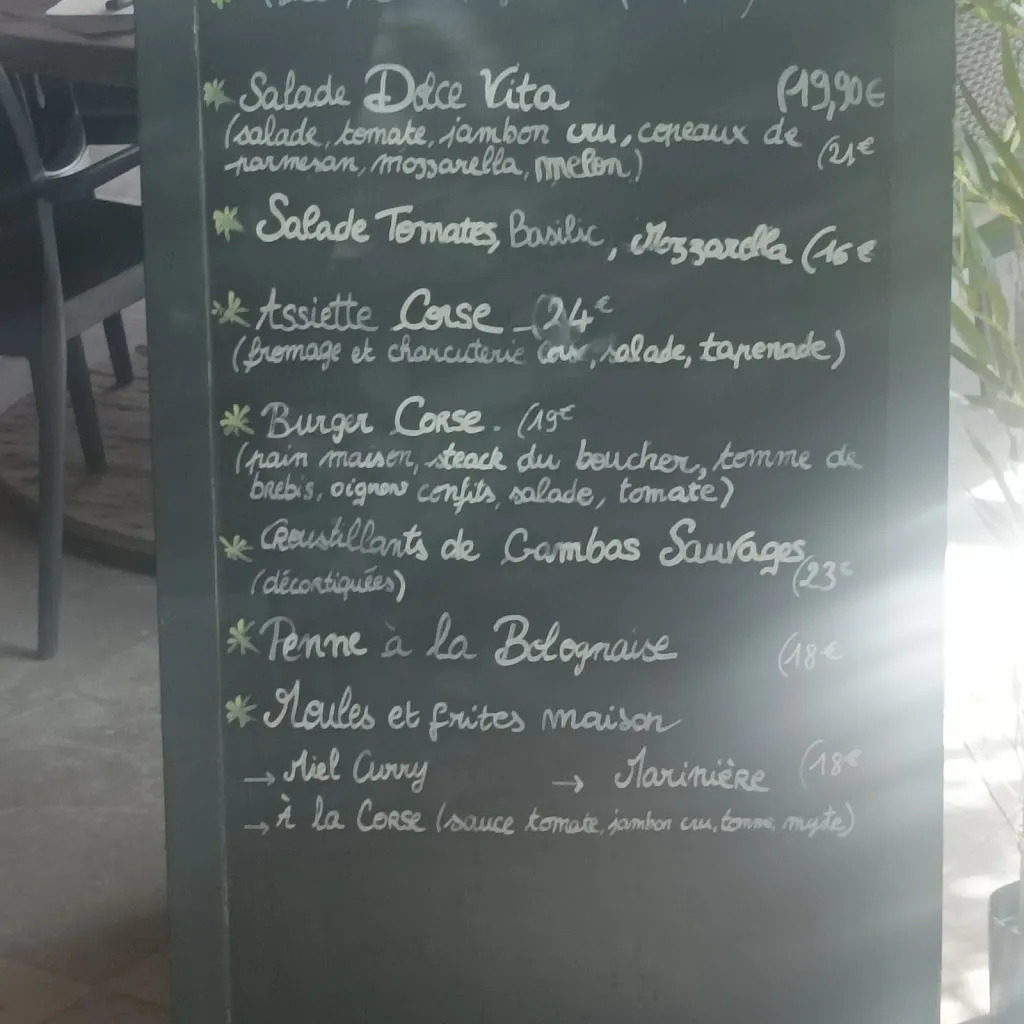 * Salade Dolce Vita (19,90€
(salade, tomate, jambon cru, copeaux de
parmesan, mozzarella, melon) (21€
* Salade Tomates, Basilic, Mozzarella (16€
* Assiette Corse - (24€
(fromage et charcuterie corse, salade, tapenade)
* Burger CORSE. (19€
(pain maison, steack du boucher, tomme de
brebis, oignons confits, salade, tomate)
* Croustillants de Gambas Sauvages
(décortiquées) (23€
* Penne à la Bolognaise (18€
* Moules et frites maison
→ Miel Curry → Marinière (18€
→ À la CORSE (sauce tomate, jambon cru, tomme, myrte)